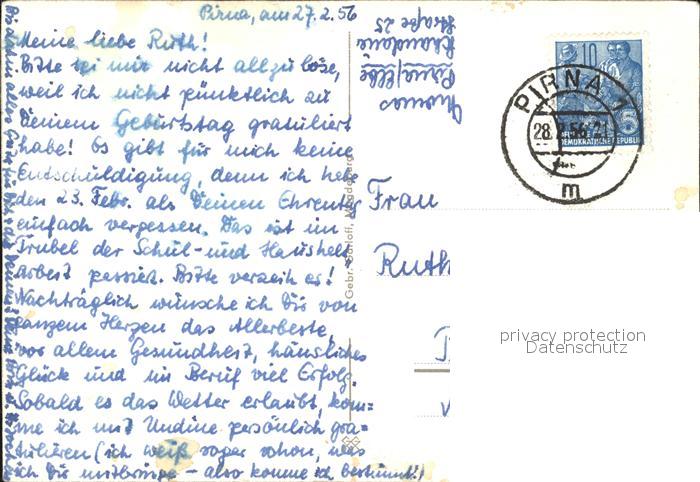 Pirna, am 27.2.56
Meine liebe Ruth!
Bitte sei mir nicht allzu böse,
weil ich nicht pünktlich zu
Deinem Geburtstag gratuliert
habe! Es gibt für mich keine
Entschuldigung, denn ich habe
den 23. Febr. als Deinen Ehrentag
einfach vergessen. Das ist im
Trubel der Schul- und Haushalt
arbeit passiert. Bitte verzeih es!
Nachträglich wünsche ich Dir von
ganzem Herzen das Allerbeste,
vor allem Gesundheit, häusliches
Glück und im Beruf viel Erfolg.
Sobald es das Wetter erlaubt, kom=
me ich mit Undine persönlich gra=
tulieren (ich weiß sogar schon, was
ich Dir mitbringe - also komme ich bestimmt!)
Bis dahin alles Gute für Dich
Thomas
Pirna/Elbe
Straße 25
Gebr. Garloff, Magdeburg
10 5
DEMOKRATISCHE REPUBLIK
PIRNA 1
28.2.56-21
m
Frau
Ruth
privacy protection
Datenschutz